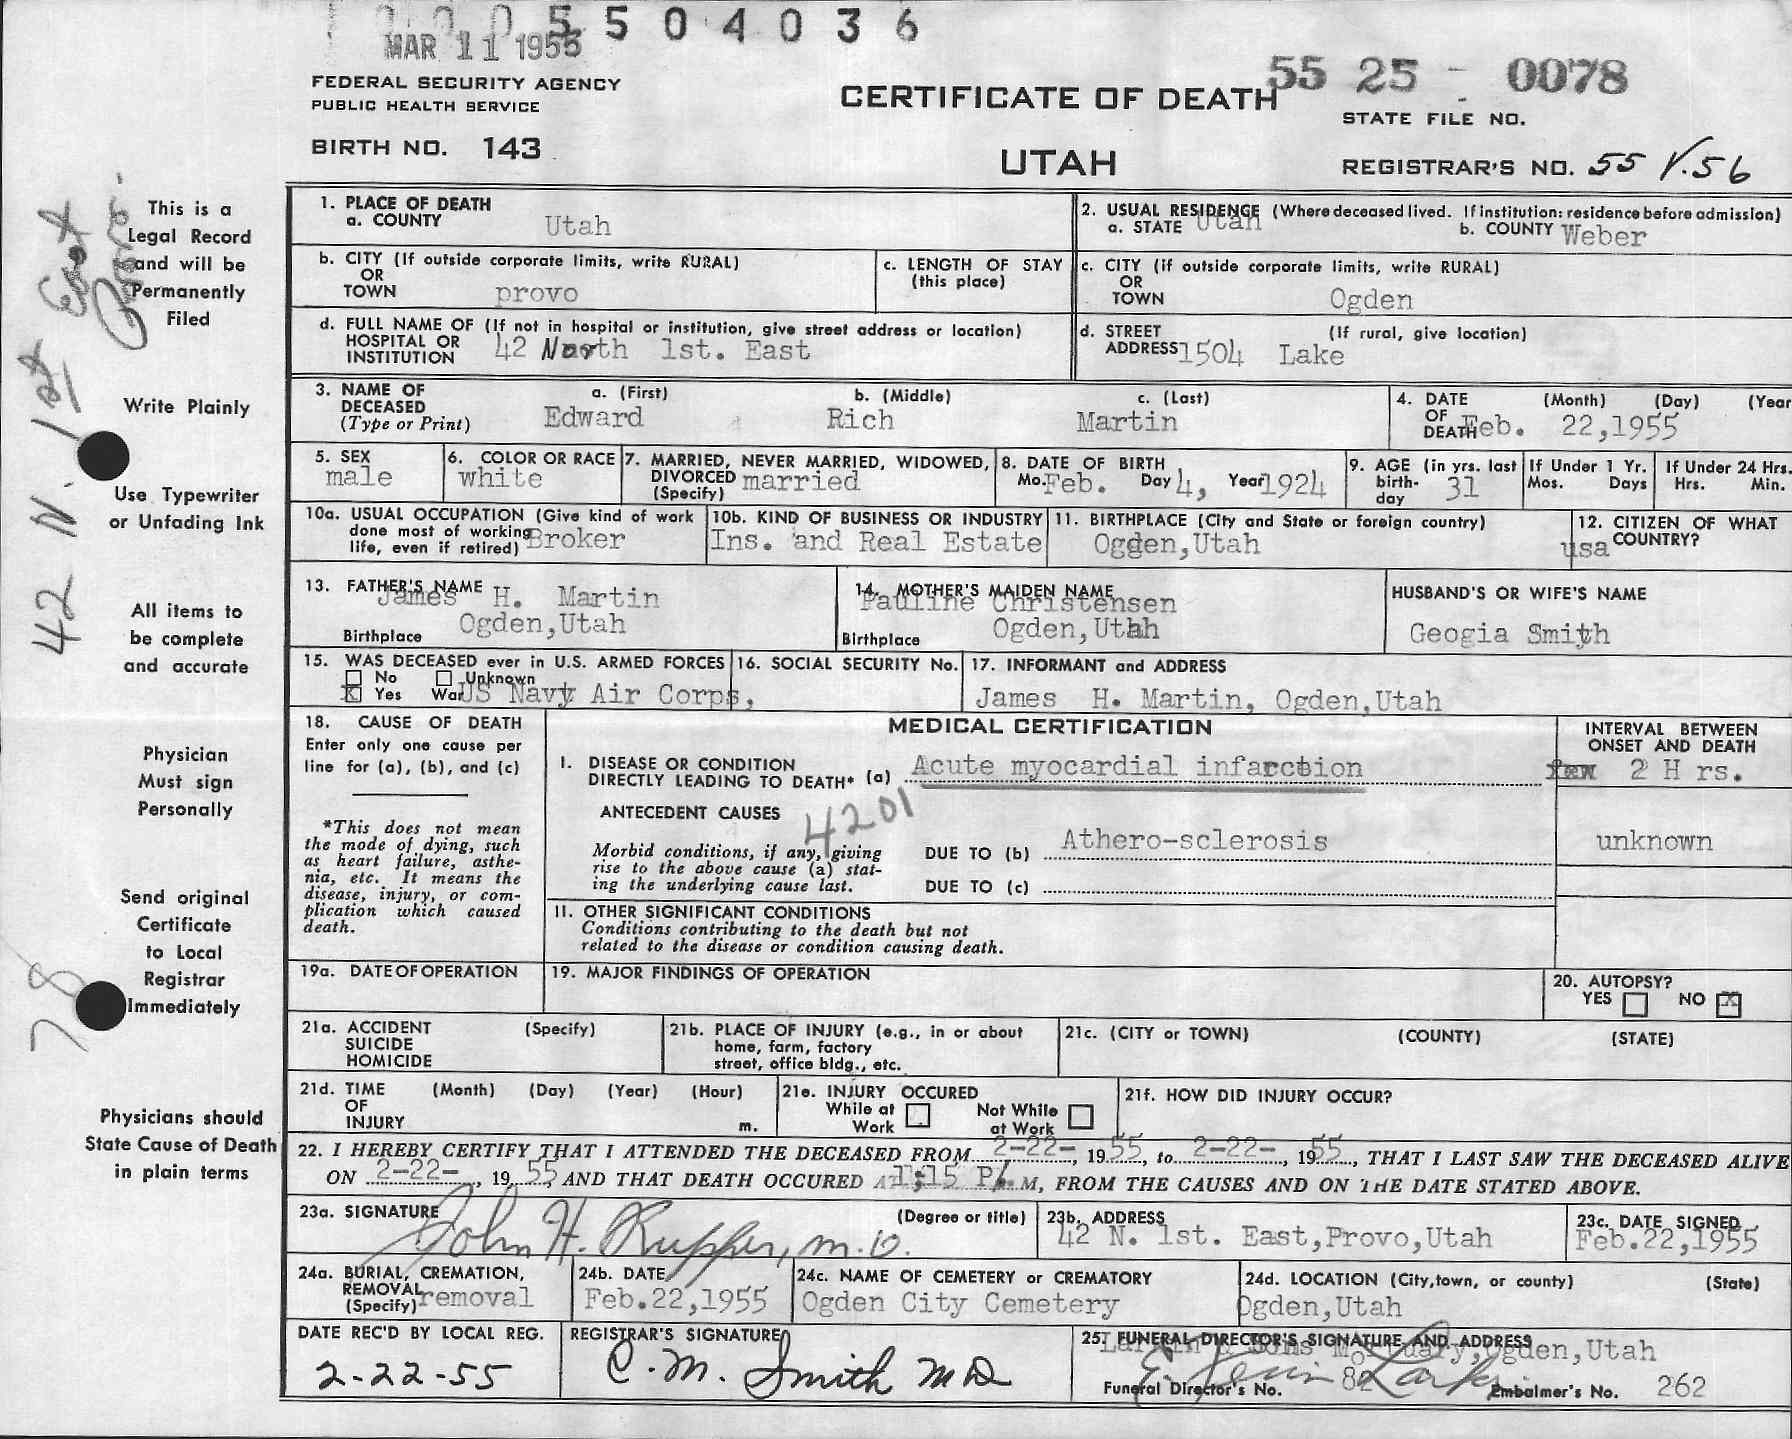 5 5 0 4 0 3 6
MAR 11 1955
FEDERAL SECURITY AGENCY
PUBLIC HEALTH SERVICE
BIRTH NO. 143
CERTIFICATE OF DEATH
UTAH
55 25 - 0078
STATE FILE NO.
REGISTRAR'S NO. 55 V.56
This is a
Legal Record
and will be
Permanently
Filed
Write Plainly
Use Typewriter
or Unfading Ink
All items to
be complete
and accurate
Physician
Must sign
Personally
Send original
Certificate
to Local
Registrar
Immediately
Physicians should
State Cause of Death
in plain terms
42 N. 1st East
78
1. PLACE OF DEATH
a. COUNTY Utah
2. USUAL RESIDENCE (Where deceased lived. If institution: residence before admission)
a. STATE Utah b. COUNTY Weber
b. CITY (If outside corporate limits, write RURAL)
OR
TOWN provo
c. LENGTH OF STAY
(this place)
c. CITY (if outside corporate limits, write RURAL)
OR
TOWN Ogden
d. FULL NAME OF (If not in hospital or institution, give street address or location)
HOSPITAL OR
INSTITUTION 42 North 1st. East
d. STREET (If rural, give location)
ADDRESS 1504 Lake
3. NAME OF
DECEASED
(Type or Print)
a. (First) b. (Middle) c. (Last)
Edward Rich Martin
4. DATE (Month) (Day) (Year
OF
DEATH Feb. 22,1955
5. SEX
male
6. COLOR OR RACE
white
7. MARRIED, NEVER MARRIED, WIDOWED,
DIVORCED married
(Specify)
8. DATE OF BIRTH
Mo. Feb. Day 4, Year 1924
9. AGE (in yrs. last
birth-
day 31
If Under 1 Yr.
Mos. Days
If Under 24 Hrs.
Hrs. Min.
10a. USUAL OCCUPATION (Give kind of work
done most of working
life, even if retired) Broker
10b. KIND OF BUSINESS OR INDUSTRY
Ins. and Real Estate
11. BIRTHPLACE (City and State or foreign country)
Ogden,Utah
12. CITIZEN OF WHAT
COUNTRY?
usa
13. FATHER'S NAME
James H. Martin
Birthplace Ogden,Utah
14. MOTHER'S MAIDEN NAME
Pauline Christensen
Birthplace Ogden,Utah
HUSBAND'S OR WIFE'S NAME
Geogia Smith
15. WAS DECEASED ever in U.S. ARMED FORCES
No Unknown
x Yes War US Navy Air Corps,
16. SOCIAL SECURITY No.
17. INFORMANT and ADDRESS
James H. Martin, Ogden,Utah
18. CAUSE OF DEATH
Enter only one cause per
line for (a), (b), and (c)
*This does not mean
the mode of dying, such
as heart failure, asthe-
nia, etc. It means the
disease, injury, or com-
plication which caused
death.
MEDICAL CERTIFICATION
INTERVAL BETWEEN
ONSET AND DEATH
I. DISEASE OR CONDITION
DIRECTLY LEADING TO DEATH* (a) Acute myocardial infarction
few 2 Hrs.
ANTECEDENT CAUSES
4201
Morbid conditions, if any, giving
rise to the above cause (a) stat-
ing the underlying cause last.
DUE TO (b) Athero-sclerosis
unknown
DUE TO (c)
II. OTHER SIGNIFICANT CONDITIONS
Conditions contributing to the death but not
related to the disease or condition causing death.
19a. DATE OF OPERATION
19. MAJOR FINDINGS OF OPERATION
20. AUTOPSY?
YES NO X
21a. ACCIDENT (Specify)
SUICIDE
HOMICIDE
21b. PLACE OF INJURY (e.g., in or about
home, farm, factory
street, office bldg., etc.
21c. (CITY or TOWN) (COUNTY) (STATE)
21d. TIME (Month) (Day) (Year) (Hour)
OF
INJURY m.
21e. INJURY OCCURED
While at Work
Not While at Work
21f. HOW DID INJURY OCCUR?
22. I HEREBY CERTIFY THAT I ATTENDED THE DECEASED FROM 2-22-, 1955, to 2-22-, 1955, THAT I LAST SAW THE DECEASED ALIVE
ON 2-22-, 1955 AND THAT DEATH OCCURED AT 1:15 P. M, FROM THE CAUSES AND ON THE DATE STATED ABOVE.
23a. SIGNATURE (Degree or title)
John H. Rupper, M.D.
23b. ADDRESS
42 N. 1st. East,Provo,Utah
23c. DATE SIGNED
Feb.22,1955
24a. BURIAL, CREMATION,
REMOVAL
(Specify) removal
24b. DATE
Feb.22,1955
24c. NAME OF CEMETERY or CREMATORY
Ogden City Cemetery
24d. LOCATION (City,town, or county) (State)
Ogden,Utah
DATE REC'D BY LOCAL REG.
2-22-55
REGISTRAR'S SIGNATURE
C. M. Smith MD
25. FUNERAL DIRECTOR'S SIGNATURE AND ADDRESS
Larkin & Sons Mortuary,Ogden,Utah
Funeral Director's No. 82 Embalmer's No. 262